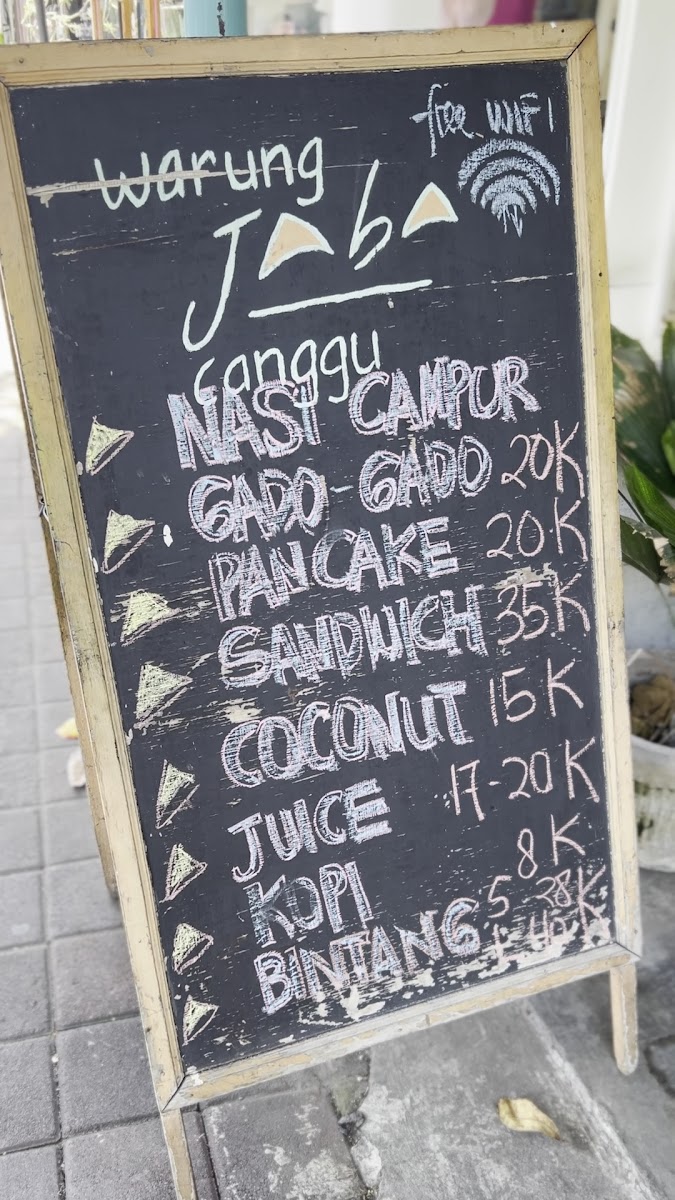 free WiFi
warung
Jaba
canggu
NASI CAMPUR
GADO-GADO 20K
PANCAKE 20K
SANDWICH 35K
COCONUT 15K
JUICE 17-20K
KOPI 8K
BINTANG S 28K
L 40K